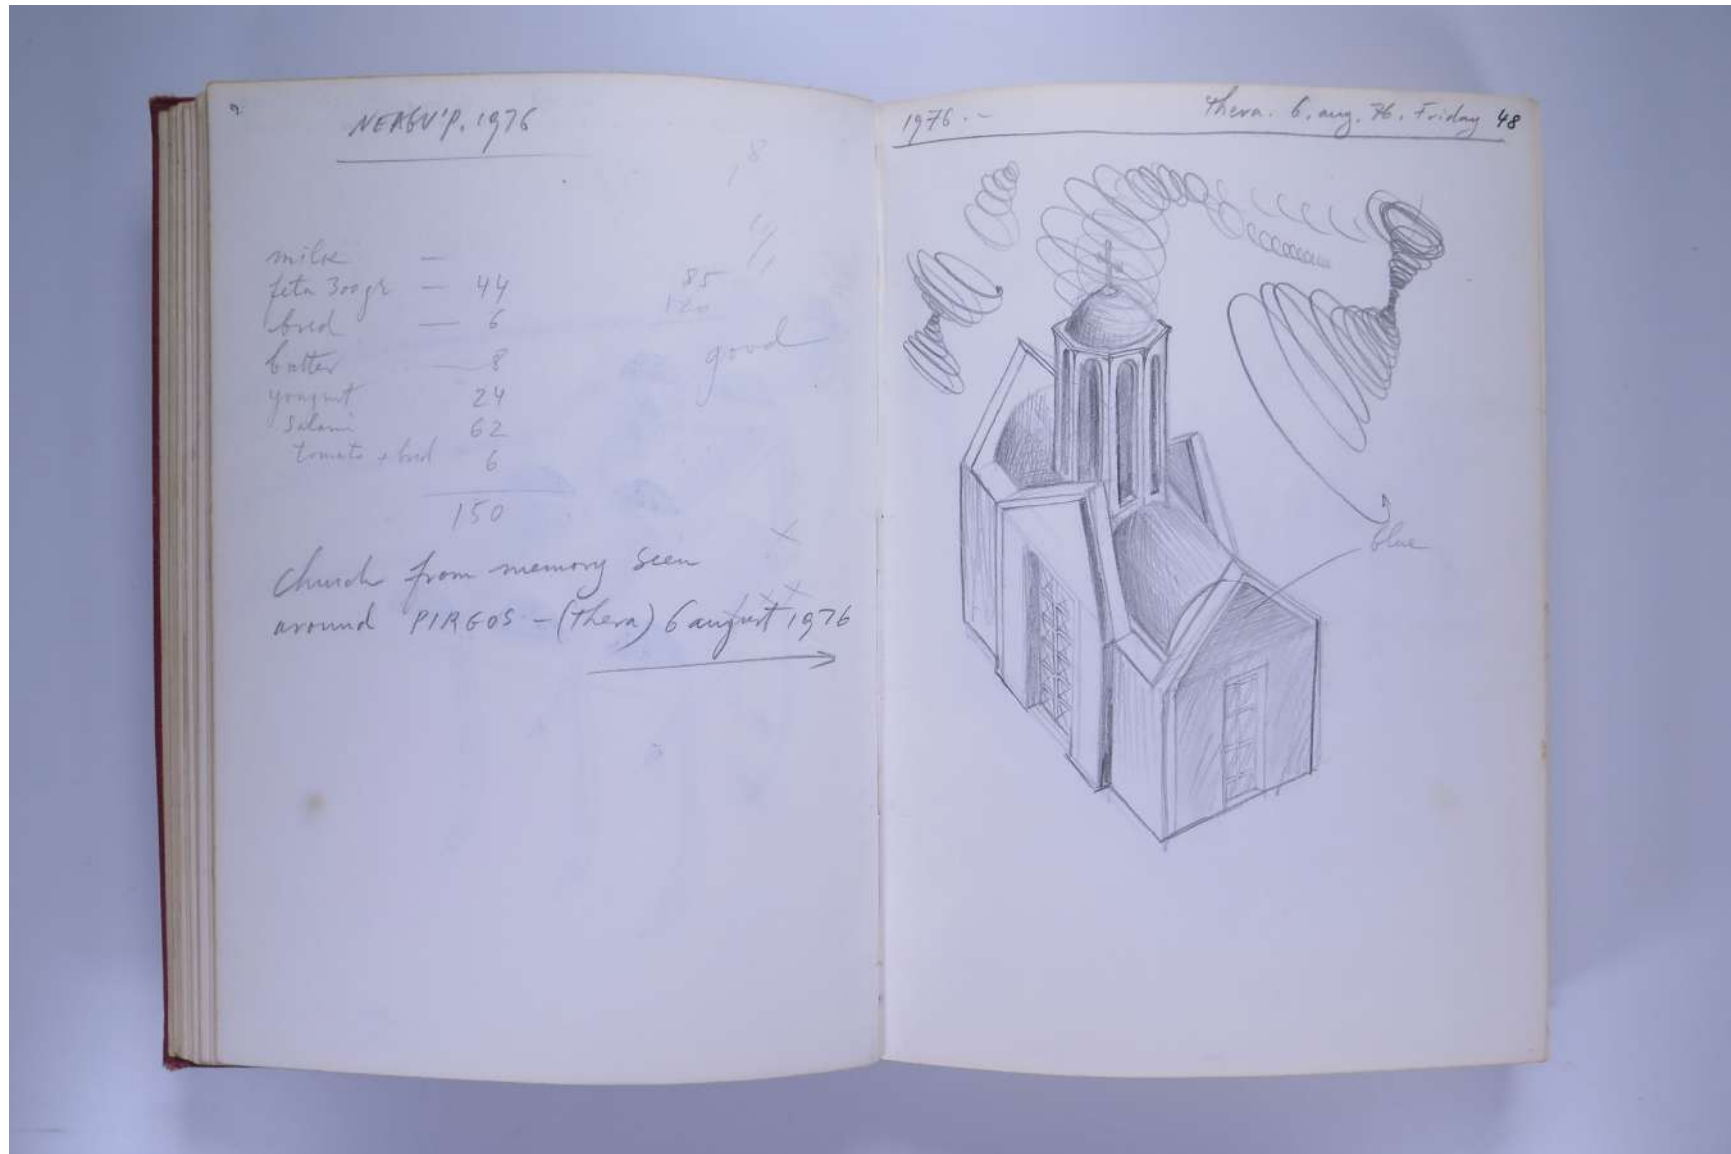 1976
milk —
feta 300gr — 44
bred — 6
butter — 8
24
Salami 62
tomato + bred 6
150
85
120
good
church from memory seen
around PIRGOS – (Thera) 6 august 1976
1976. –
Thera. 6. aug. 76. Friday 48
blue